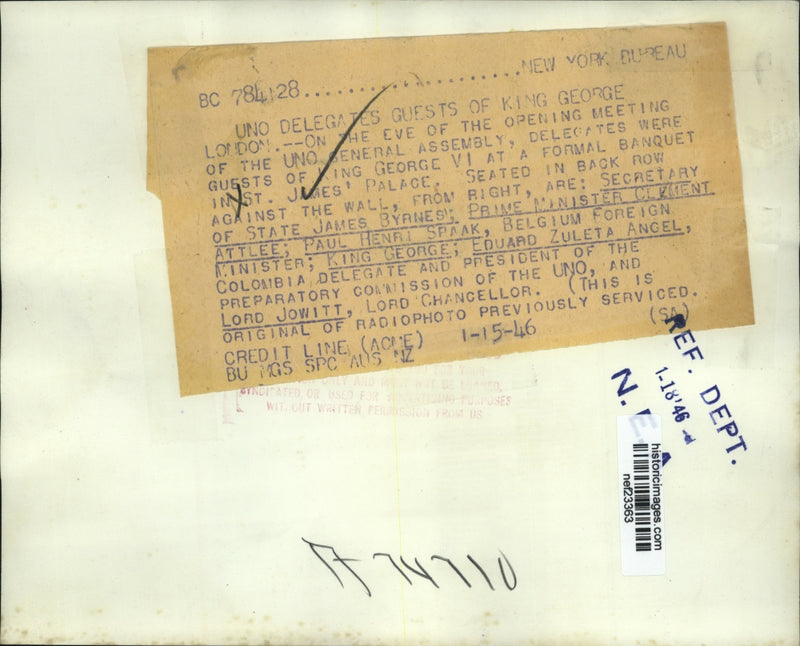 BC 784128......................NEW YORK BUREAU
UNO DELEGATES GUESTS OF KING GEORGE
LONDON.--ON THE EVE OF THE OPENING MEETING
OF THE UNO GENERAL ASSEMBLY, DELEGATES WERE
GUESTS OF KING GEORGE VI AT A FORMAL BANQUET
IN ST. JAMES' PALACE. SEATED IN BACK ROW
AGAINST THE WALL, FROM RIGHT, ARE: SECRETARY
OF STATE JAMES BYRNES; PRIME MINISTER CLEMENT
ATTLEE; PAUL HENRI SPAAK, BELGIUM FOREIGN
MINISTER; KING GEORGE; EDUARD ZULETA ANGEL,
COLOMBIA DELEGATE AND PRESIDENT OF THE
PREPARATORY COMMISSION OF THE UNO, AND
LORD JOWITT, LORD CHANCELLOR. (THIS IS
ORIGINAL OF RADIOPHOTO PREVIOUSLY SERVICED.
CREDIT LINE (ACME) 1-15-46 (SA)
BU MGS SPC AUS NZ
FOR YOUR
ONLY AND MUST NOT BE LOANED,
SYNDICATED, OR USED FOR ADVERTISING PURPOSES
WITHOUT WRITTEN PERMISSION FROM US
REF. DEPT.
1-18'46
N. E. A
historicimages.com
nef23363
74710